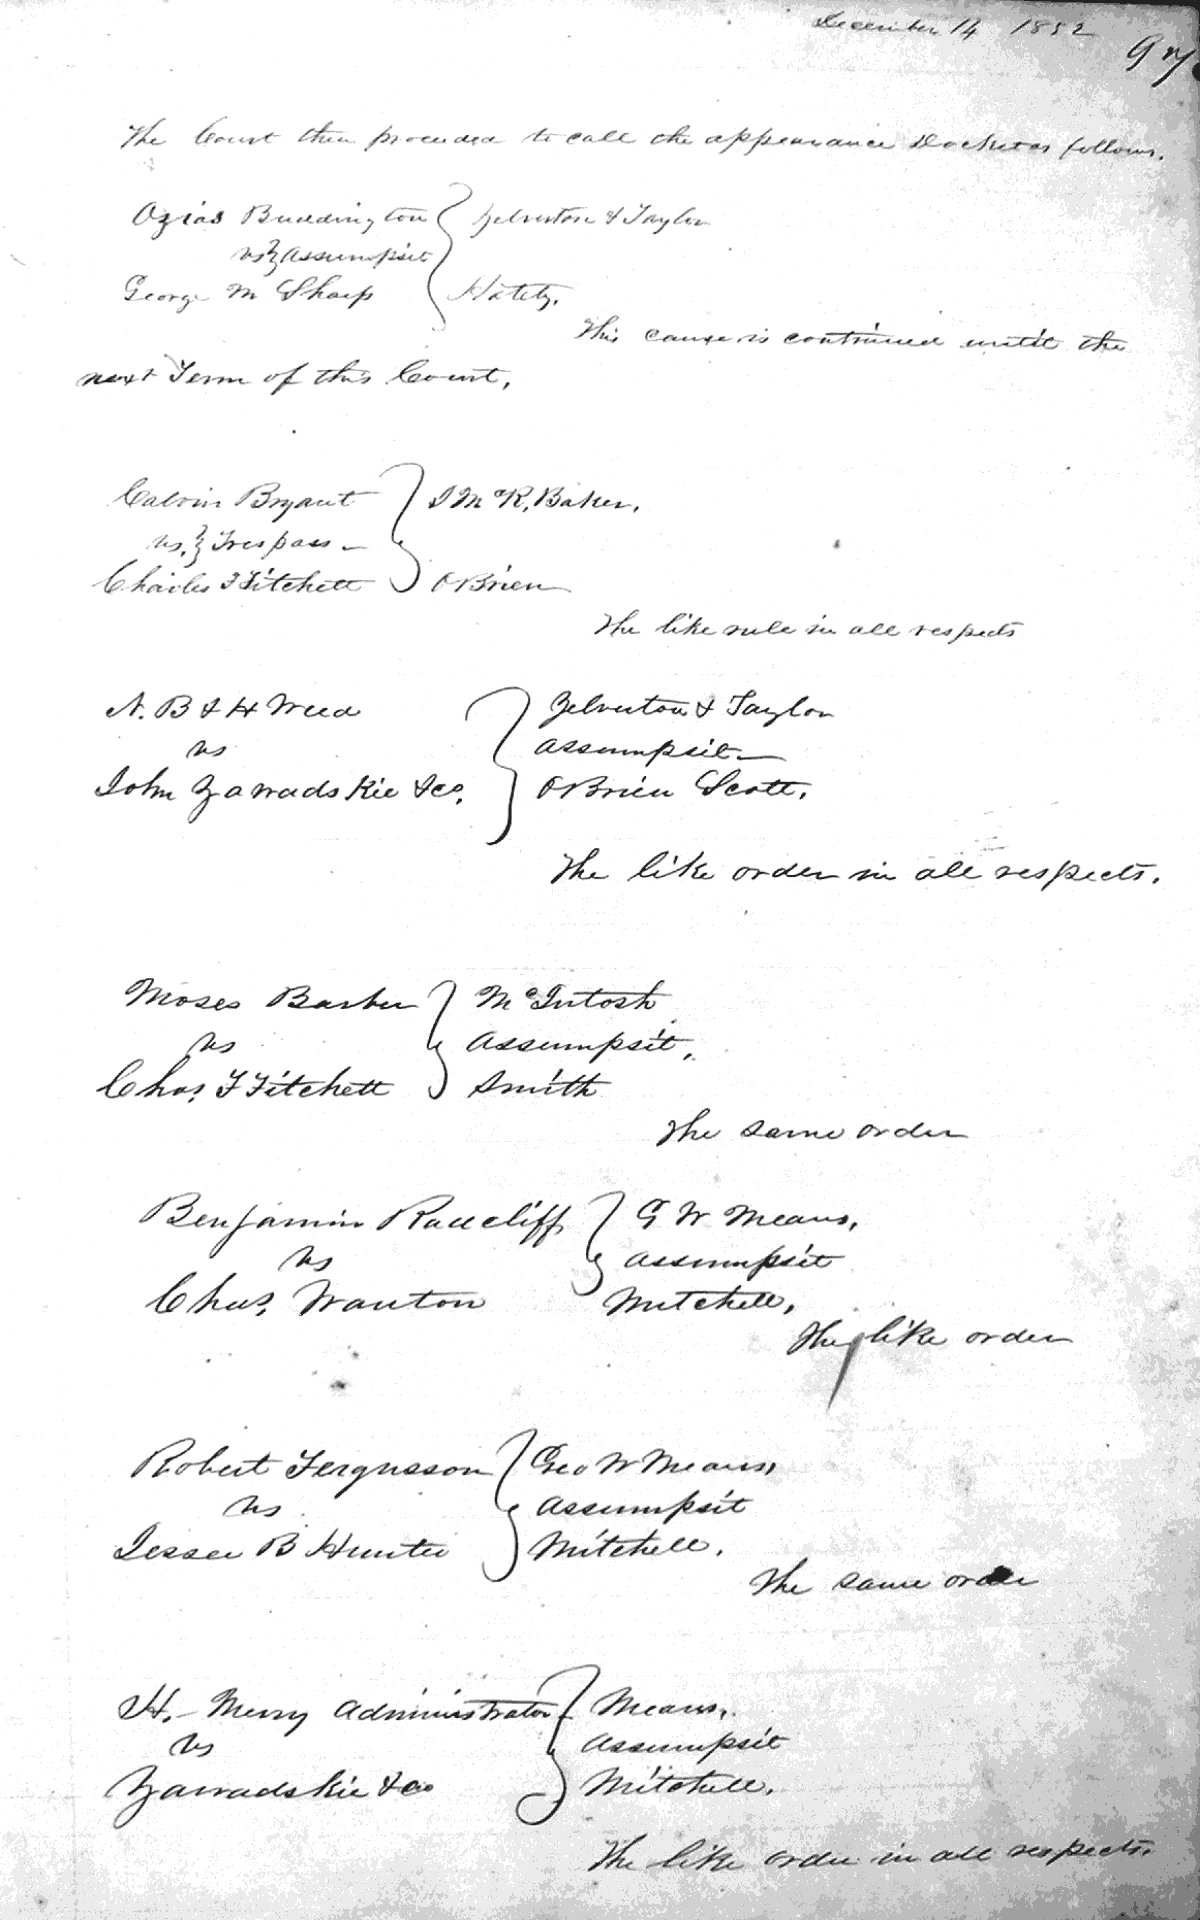 December 14 1852
97
The Court then proceeded to call the appearance Docket as follows.
Ozias Buddington } Yelverton & Taylor
vs } Assumpsit
George M Sharp } Hately.
This cause is continued until the
next Term of this Court.
Calvin Bryant } I McR. Baker.
vs. } Trespass
Charles F Fitchett } OBrien
The like rule in all respects
N. B & H Weed } Yelverton & Taylor
vs } Assumpsit
John Zawadskie & co. } OBrien Scott.
The like order in all respects.
Moses Barber } McIntosh
vs } Assumpsit.
Chas. F Fitchett } Smith
The same order
Benjamin Radcliff } G W Means.
vs } Assumpsit
Chas. Wanton } Mitchell.
The like order
Robert Fergusson } Geo W Means,
vs } Assumpsit
Jesse B Hunter } Mitchell.
The same order
H. Merry Administrator } Means.
vs } Assumpsit
Zawadskie & co } Mitchell.
The like order in all respects.